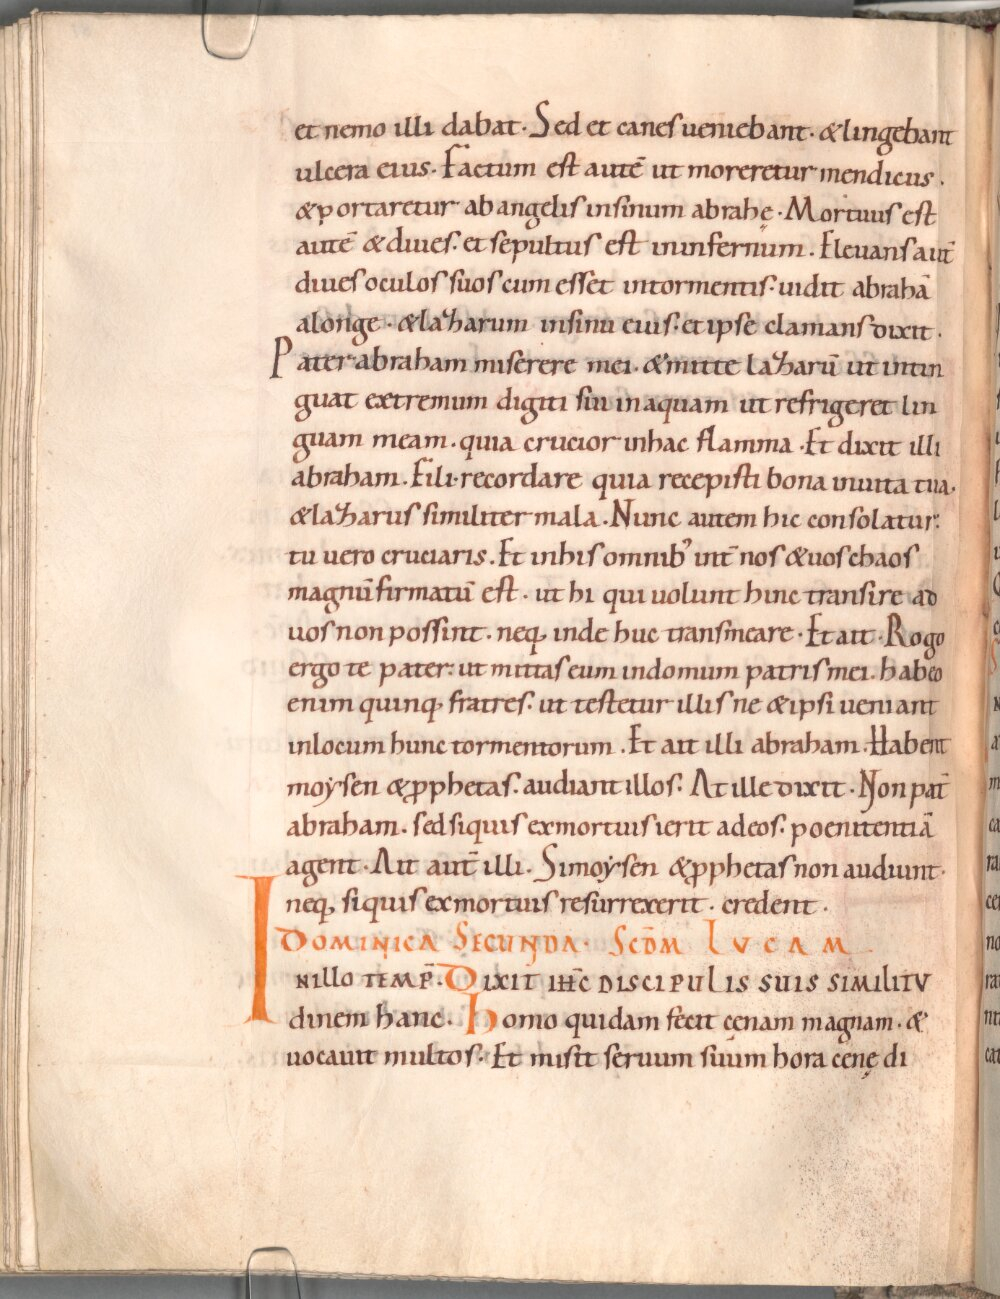 et nemo illi dabat. Sed et canes veniebant. & lingebant
ulcera eius. Factum est autē ut moreretur mendicus.
& portaretur ab angelis in sinum abrahę. Mortuus est
autē & dives. et sepultus est in infernum. Elevans aut̄
dives oculos suos cum esset in tormentis. vidit abrahā
a longe. & lazharum in sinu eius. et ipse clamans dixit.
Pater abraham miserere mei. & mitte lazharū ut intin
guat extremum digiti sui in aquam ut refrigeret lin
guam meam. quia crucior in hac flamma. Et dixit illi
abraham. Fili recordare quia recepisti bona in vita tua.
& lazharus similiter mala. Nunc autem hic consolatur:
tu vero cruciaris. Et in his omnib; int̄ nos & vos chaos
magnū firmatū est. ut hi qui volunt hinc transire ad
vos non possint. neq; inde huc transmeare. Et ait. Rogo
ergo te pater: ut mittas eum in domum patris mei. habeo
enim quinq; fratres. ut testetur illis ne & ipsi veniant
in locum hunc tormentorum. Et ait illi abraham. Habent
moẏsen & p̱phetas. audiant illos. At ille dixit. Non pat̄
abraham. sed si quis ex mortuis ierit ad eos. poenitentiā
agent. Ait aut̄ illi. Si moẏsen & p̱phetas non audiunt.
neq; si quis ex mortuis resurrexerit. credent.
DOMINICA SECUNDA. SCDM LVCAM
IN ILLO TEMP̄. DIXIT IHC̄ DISCIPULIS SUIS SIMILITV
dinem hanc. Homo quidam fecit cenam magnam. &
vocavit multos. Et misit servum suum hora cenę di